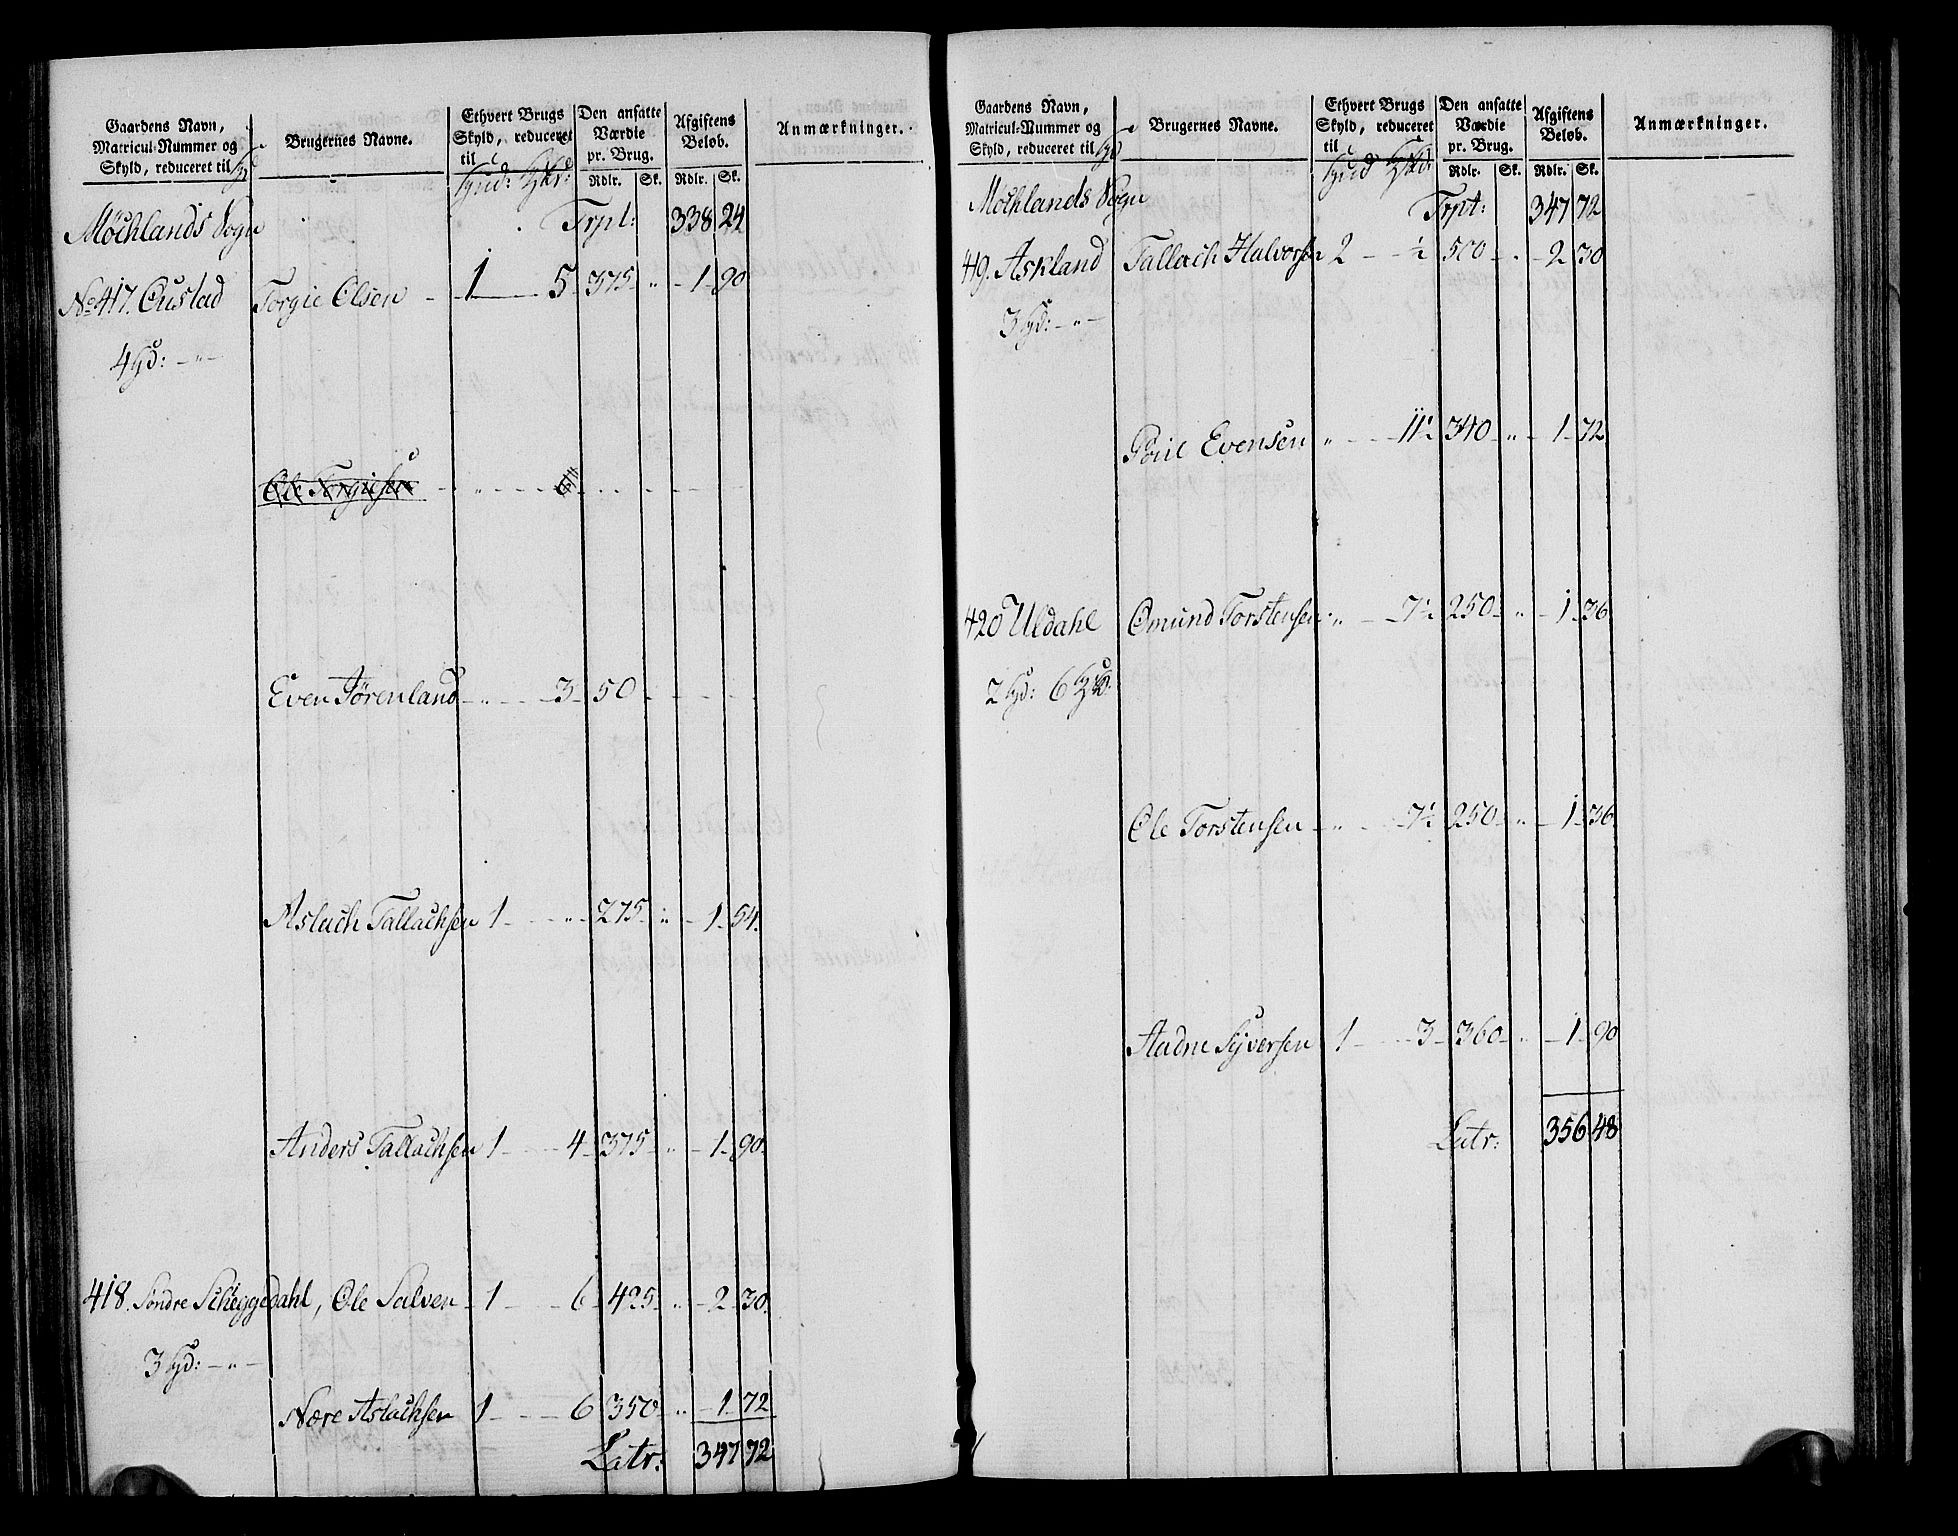 Gaardens Navn,
Matricul-Nummer og
Skyld, reduceret til
Brugernes Navne.
Ethvert Brugs
Skyld, reduceret
til
Den ansatte
Værdie
pr. Brug.
Rdlr. Sk.
Afgiftens
Beløb.
Rdlr. Sk.
Anmærkninger.
Möchlands Sogn Trpt: 338 24
No 417. Oustad Torgie Olsen 1 5 375 " 1 90
4 hd: - " -
Ole Torgiesen " 6
Even Törenland " 3 50
Aslach Tallachsen 1 " 275 " 1 54
Anders Tallachsen 1 4 375 " 1 90
418. Søndre Scheggedahl, Ole Salven 1 6 425 " 2 30
3 hd: - " -
Nære Aslachsen 1 6 350 " 1 72
Latr: 347 72
Gaardens Navn,
Matricul-Nummer og
Skyld, reduceret til
Brugernes Navne.
Ethvert Brugs
Skyld, reduceret
til
Den ansatte
Værdie
pr. Brug.
Rdlr. Sk.
Afgiftens
Beløb.
Rdlr. Sk.
Anmærkninger.
Möchlands Sogn Trpt: 347 72
419. Askland Tallach Halvorsen 2 ½ 500 2 30
3 hd: - " -
Poul Evensen " 11½ 340 " 1 72
420 Uldahl Omund Torstensen " 7½ 250 " 1 36
2 hd: 6
Ole Torstensen " 7½ 250 " 1 36
Aadne Syversen 1 3 360 " 1 90
Latr: 356 48